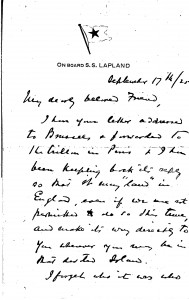 ON BOARD S.S. LAPLAND
September 17th/25
My dearly beloved Friend,
I have your letter addressed
to Brussels & forwarded to
the Crillon in Paris & I have
been keeping back the reply
so that it may "land" in
England, even if we are not
permitted to do so this time,
and make its way directly to
you wherever you may be in
that Island.
I forget who it was who